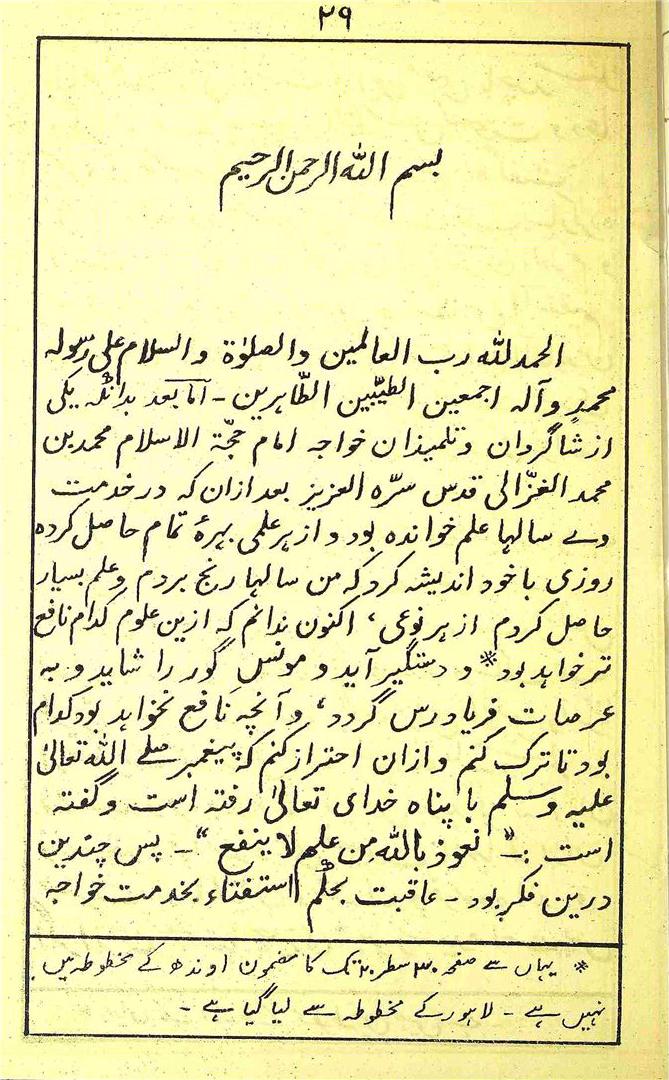 ۲۹
بسم الله الرحمن الرحیم
الحمد لله رب العالمین والصلوٰة والسلام علی رسوله
محمدٍ وآله اجمعین الطیّبین الطّاهرین ـ اما بعد بدانکه یکی
از شاگردان و تلمیذان خواجه امام حجّة الاسلام محمد بن
محمد الغزّالی قدس سرّه العزیز بعد ازان که در خدمت
وے سالها علم خوانده بود و از هر علمی بهرۀ تمام حاصل کرده
روزی با خود اندیشه کرد که من سالها رنج بردم و علم بسیار
حاصل کردم از هر نوعی، اکنون ندانم که ازین علوم کدام نافع
تر خواهد بود* و دستگیر آید و مونس گور را شاید و به
عرصات فریادرس گردد، و آنچه نافع نخواهد بود کدام
بود تا ترک کنم و ازان احتراز کنم که پیغمبر صلے الله تعالیٰ
علیه وسلم با پناه خدای تعالیٰ رفته است و گفته
است :ـ "نعوذ بالله من علم لا ینفع" ـ پس چندین
درین فکر بود ـ عاقبت بحکم استفتاء بخدمت خواجه
* یہاں سے صفحہ ۳۰ سطر ۲۰ تک کا مضمون اوندھ کے مخطوطہ میں
نہیں ہے ـ لاہور کے مخطوطہ سے لیا گیا ہے ـ